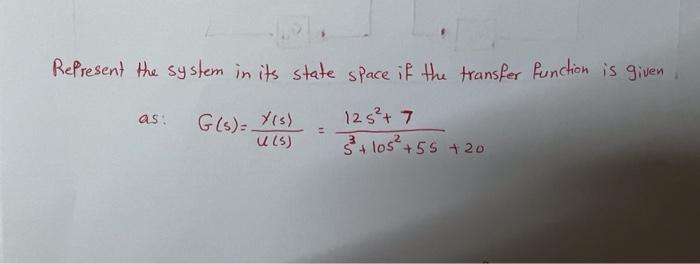 Represent the system in its state space if the transfer function is given
as: G(s) = Y(s)/U(s) = 12s²+7 / s³+10s²+5s+20